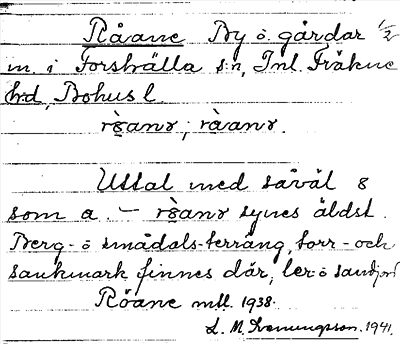 Råane By o. gårdar 1/2
m. i Forshälla sn, Inl. Fräkne
hd, Bohus l.
Uttal med såväl 8
som a. – synes äldst.
Berg- o smådals-terräng, torr- och
sankmark finnes där, ler- o sandjord
Råane mtl. 1938.
L. M. 1941.